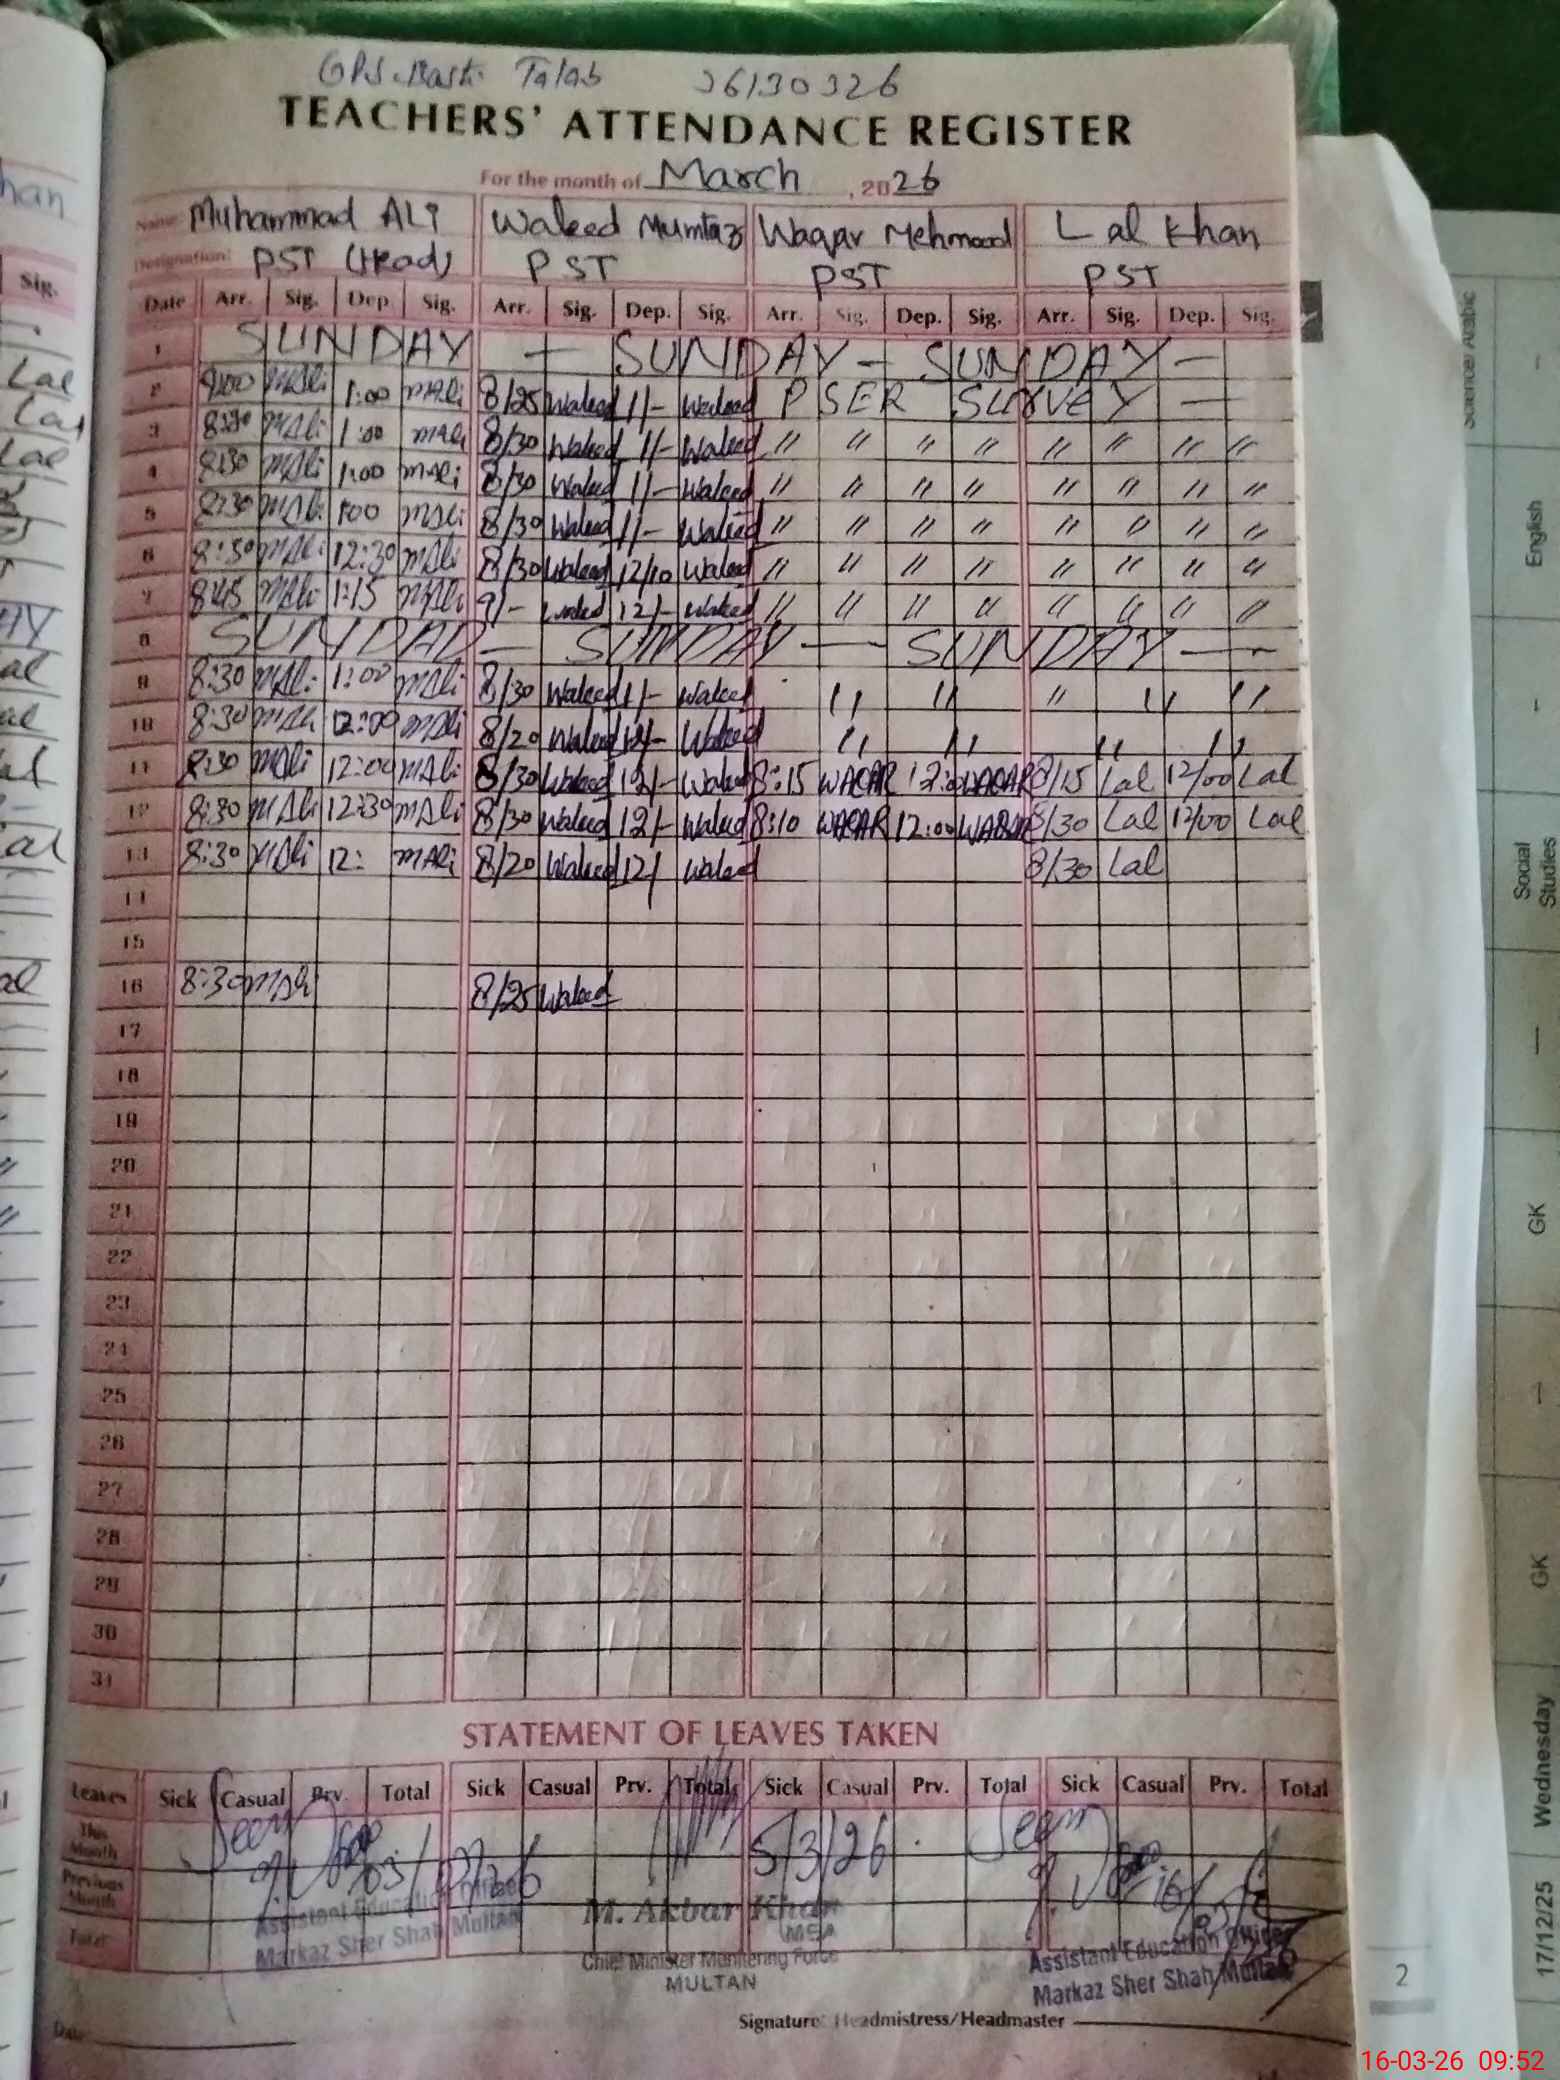 GPS Basti Talab 36130326
TEACHERS' ATTENDANCE REGISTER
For the month of March, 2026
Name: Muhammad ALi Waleed Mumtaz Waqar Mehmood Lal Khan
Designation: PST (Head) PST PST PST
Date Arr. Sig. Dep. Sig. Arr. Sig. Dep. Sig. Arr. Sig. Dep. Sig. Arr. Sig. Dep. Sig.
1 SUNDAY — SUNDAY — SUNDAY —
2 9:00 MAli 1:00 MAli 8/25 Waleed 1/- Waleed PSER SURVEY —
3 8:30 MAli 1:00 MAli 8/30 Waleed 1/- Waleed " " " " " " " "
4 8:30 MAli 1:00 MAli 8/30 Waleed 1/- Waleed " " " " " " " "
5 8:30 MAli 1:00 MAli 8/30 Waleed 1/- Waleed " " " " " " " "
6 8:30 MAli 12:30 MAli 8/30 Waleed 12/10 Waleed " " " " " " " "
7 8:45 MAli 1:15 MAli 9/- Waleed 12/- Waleed " " " " " " " "
8 SUNDAD — SUNDAY — SUNDAY —
9 8:30 MAli 1:00 MAli 8/30 Waleed 1/- Waleed " " " " "
10 8:30 MAli 12:00 MAli 8/20 Waleed 12/- Waleed " " " "
11 8:30 MAli 12:00 MAli 8/30 Waleed 12/- Waleed 8:15 WAQAR 12:00 WAQAR 8/15 Lal 12/00 Lal
12 8:30 MAli 12:30 MAli 8/30 Waleed 12/- Waleed 8:10 WAQAR 12:00 WAQAR 8/30 Lal 12/00 Lal
13 8:30 MAli 12: MAli 8/20 Waleed 12/ Waleed 8/30 Lal
14
15
16 8:30 MAli 8/25 Waleed
17
18
19
20
21
22
23
24
25
26
27
28
29
30
31
STATEMENT OF LEAVES TAKEN
Leaves Sick Casual Prv. Total Sick Casual Prv. Total Sick Casual Prv. Total Sick Casual Prv. Total
This Month Seen 5/3/26 Seen
Previous Month
Total
Assistant Education Officer
Markaz Sher Shah Multan
M. Akbar Khan
MEA
Chief Minister Monitering Force
MULTAN
Assistant Education Officer
Markaz Sher Shah Multan
Signature: Headmistress/Headmaster
Date:
han
Sig.
Lal
Lal
Lal
Science/Arabic
English
Social Studies
GK
GK
Wednesday
17/12/25
2
16-03-26 09:52